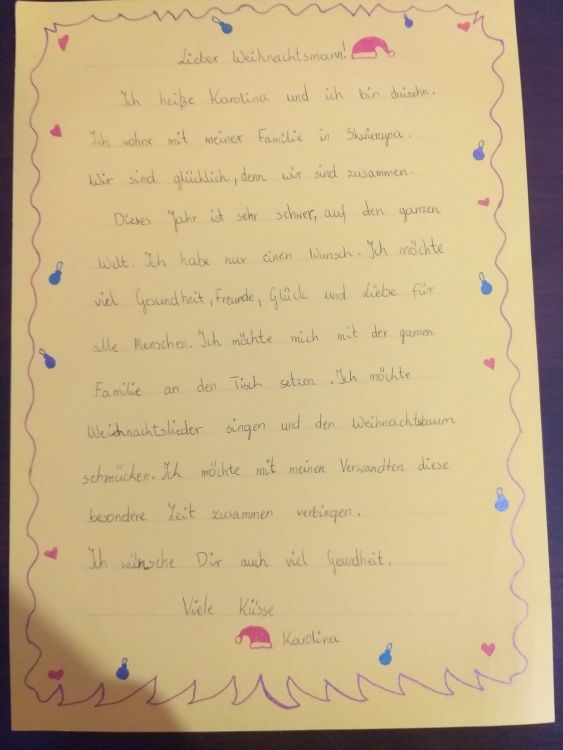 Lieber Weihnachtsmann!
Ich heiße Karolina und ich bin dreizehn.
Ich wohne mit meiner Familie in
Wir sind glücklich, denn wir sind zusammen.
Dieses Jahr ist sehr schwer, auf den ganzen
Welt. Ich habe nur einen Wunsch. Ich möchte
viel Gesundheit, Freunde, Glück und Liebe für
alle Menschen. Ich möchte mich mit der ganzen
Familie an den Tisch setzen. Ich möchte
Weihnachtslieder singen und den Weihnachtsbaum
schmücken. Ich möchte mit meinen Verwandten diese
besondere Zeit zusammen verbingen.
Ich wünsche Dir auch viel Gesundheit.
Viele Küsse
Karolina